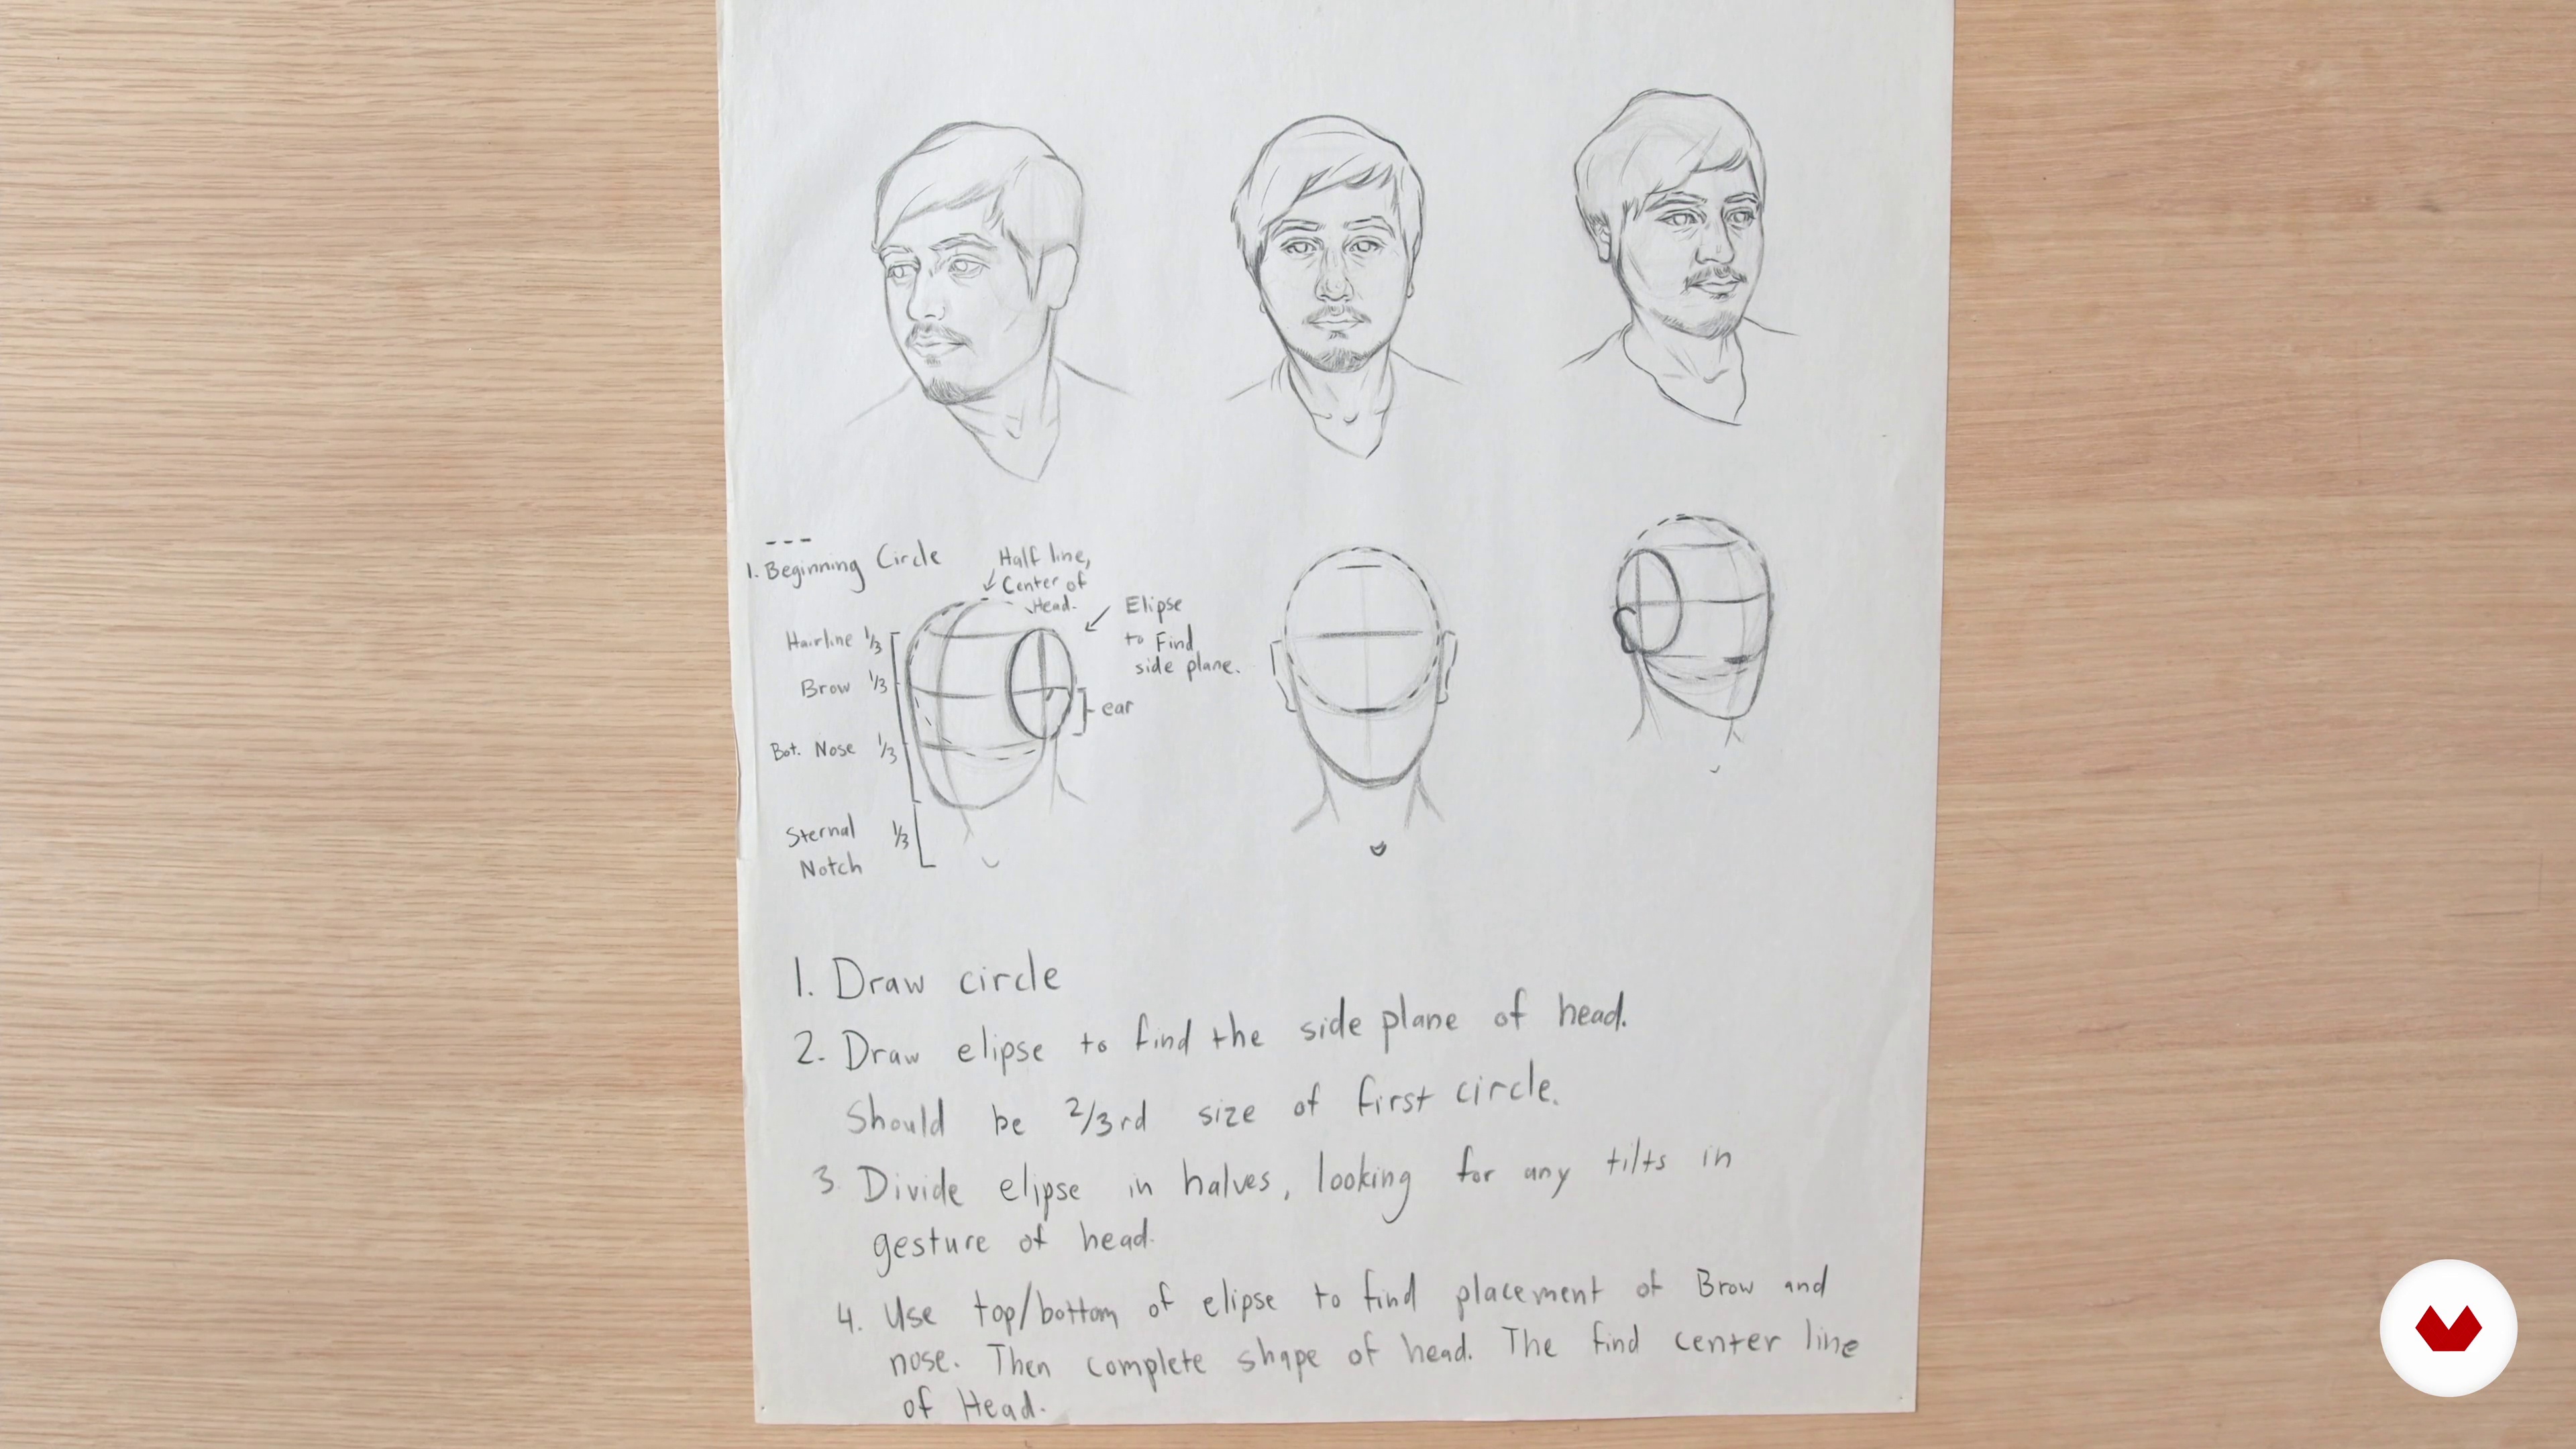 1. Beginning Circle
Half line,
Center of
Head.
Elipse
to Find
side plane.
Hairline 1/3
Brow 1/3
ear
Bot. Nose 1/3
Sternal 1/3
Notch
1. Draw circle
2. Draw elipse to find the side plane of head.
Should be 2/3rd size of first circle.
3. Divide elipse in halves, looking for any tilts in
gesture of head.
4. Use top/bottom of elipse to find placement of Brow and
nose. Then complete shape of head. The find center line
of Head.